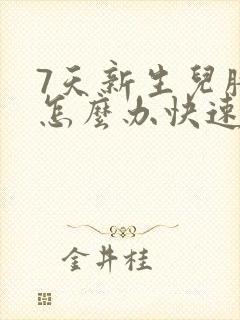 7天新生兒
怎麼办快速
金井桂